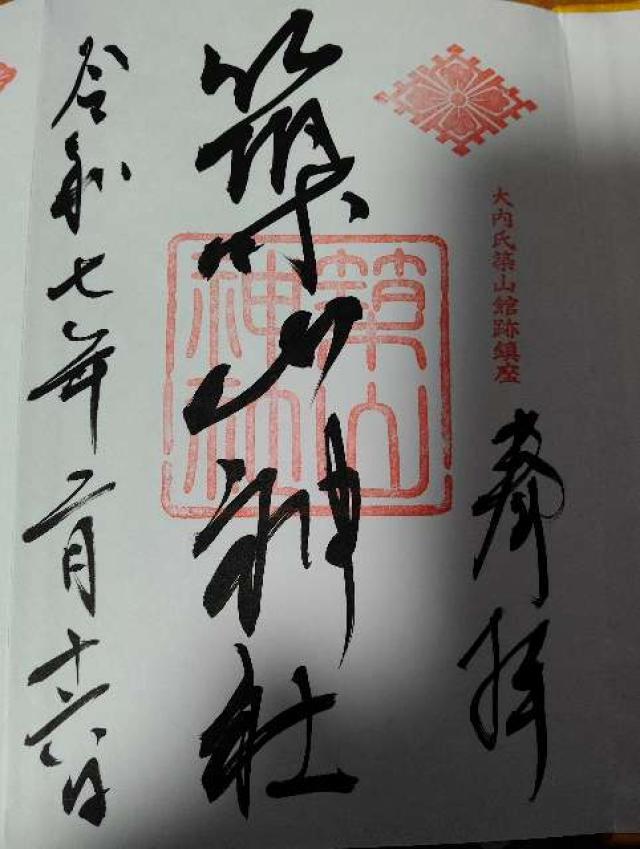 大内氏築山館跡鎮座
奉拝
築山神社
築山神社
令和七年二月十六日